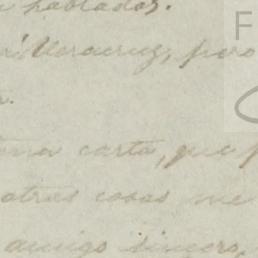 hablados.
á Veracruz, pero
carta, que
otras cosas me
amigo sincero,
F